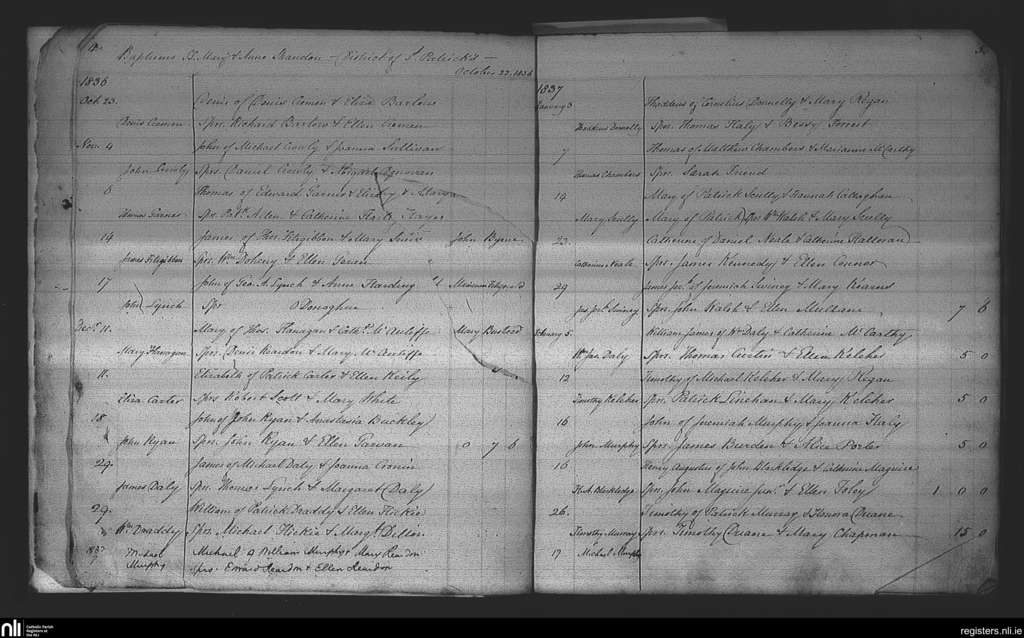 Baptisms St. Mary & Anne Shandon — District of St. Patrick's —
October 23. 1836
1836
Oct 23. Denis of Denis Cronin & Eliza Barlow
Denis Cronin Sprs. Richard Barlow & Ellen Cronin
Nov. 4 John of Michael Crowly & Joanna Sullivan
John Crowly Sprs. Daniel Crowly & Donovan
6 Thomas of Edward Garner &
Thomas Garner Sprs. Patk. Allen & Catherine
14 James of Thos. Fitzgibbon & Mary John Byrne
James Fitzgibbon Sprs. Wm. Doheny & Ellen
17 John of Geo. A. Lynch & Anne Harding
John Lynch Spr O'Donoghue
Decr. 11. Mary of Thos. Flanagan & Cathe. McAuliffe Mary
Mary Flanagan Sprs. Denis Reardon & Mary McAuliffe
11. Elizabeth of Patrick Carter & Ellen Keily
Eliza Carter Sprs Robert Scott & Mary White
18 John of John Ryan & Anastasia Buckley
John Ryan Sprs. John Ryan & Ellen 0 7 6
29. James of Michael Daly & Joanna Cronin
James Daly Sprs. Thomas Lynch & Margaret Daly
29. William of Patrick Draddy & Ellen Hickie
Wm Draddy Sprs. Michael Hickie & Margt. Dillon
1837 Michael of William Murphy & Mary Reardon
Michael Murphy Sprs. Edward Reardon & Ellen Reardon
1837
January 3 Thaddeus of Cornelius Donnelly & Mary Regan
Thaddeus Donnelly Sprs. Thomas Haly & Bessy Forrest
7 Thomas of Matthew Chambers & Marianne McCarthy
Thomas Chambers Sprs. Sarah Friend
14 Mary of Patrick Scully & Hannah Callaghan
Mary Scully Mary of Patrick Sprs Wm Walsh & Mary Scully
22. Catherine of Daniel Neale & Catherine Halloran
Catherine Neale Sprs. James Kennedy & Ellen Connor
29 James of Jeremiah Swiney & Mary Kearns
Swiney Sprs. John Walsh & Ellen Mullane 7 6
February 5. William James of Wm Daly & Catherine McCarthy
Wm Jas Daly Sprs. Thomas Curtin & Ellen Keleher 5 0
12 Timothy of Michael Keleher & Mary Regan
Timothy Keleher Sprs. Patrick Linehan & Mary Keleher 5 0
16 John of Jeremiah Murphy & Joanna Haly
John Murphy Sprs. James Burden & Alice Porter 5 0
16 Henry Augustus of John Blackledge & Catherine Maguire
H. A. Blackledge Sprs. John Maguire junr. & Ellen Foley 1 0 0
26. Timothy of Patrick Murray & Honora Duane
Timothy Murray Sprs. Timothy Duane & Mary Chapman 15 0
17 Michael Murphy
nli
Catholic Parish
Registers at
the NLI
registers.nli.ie